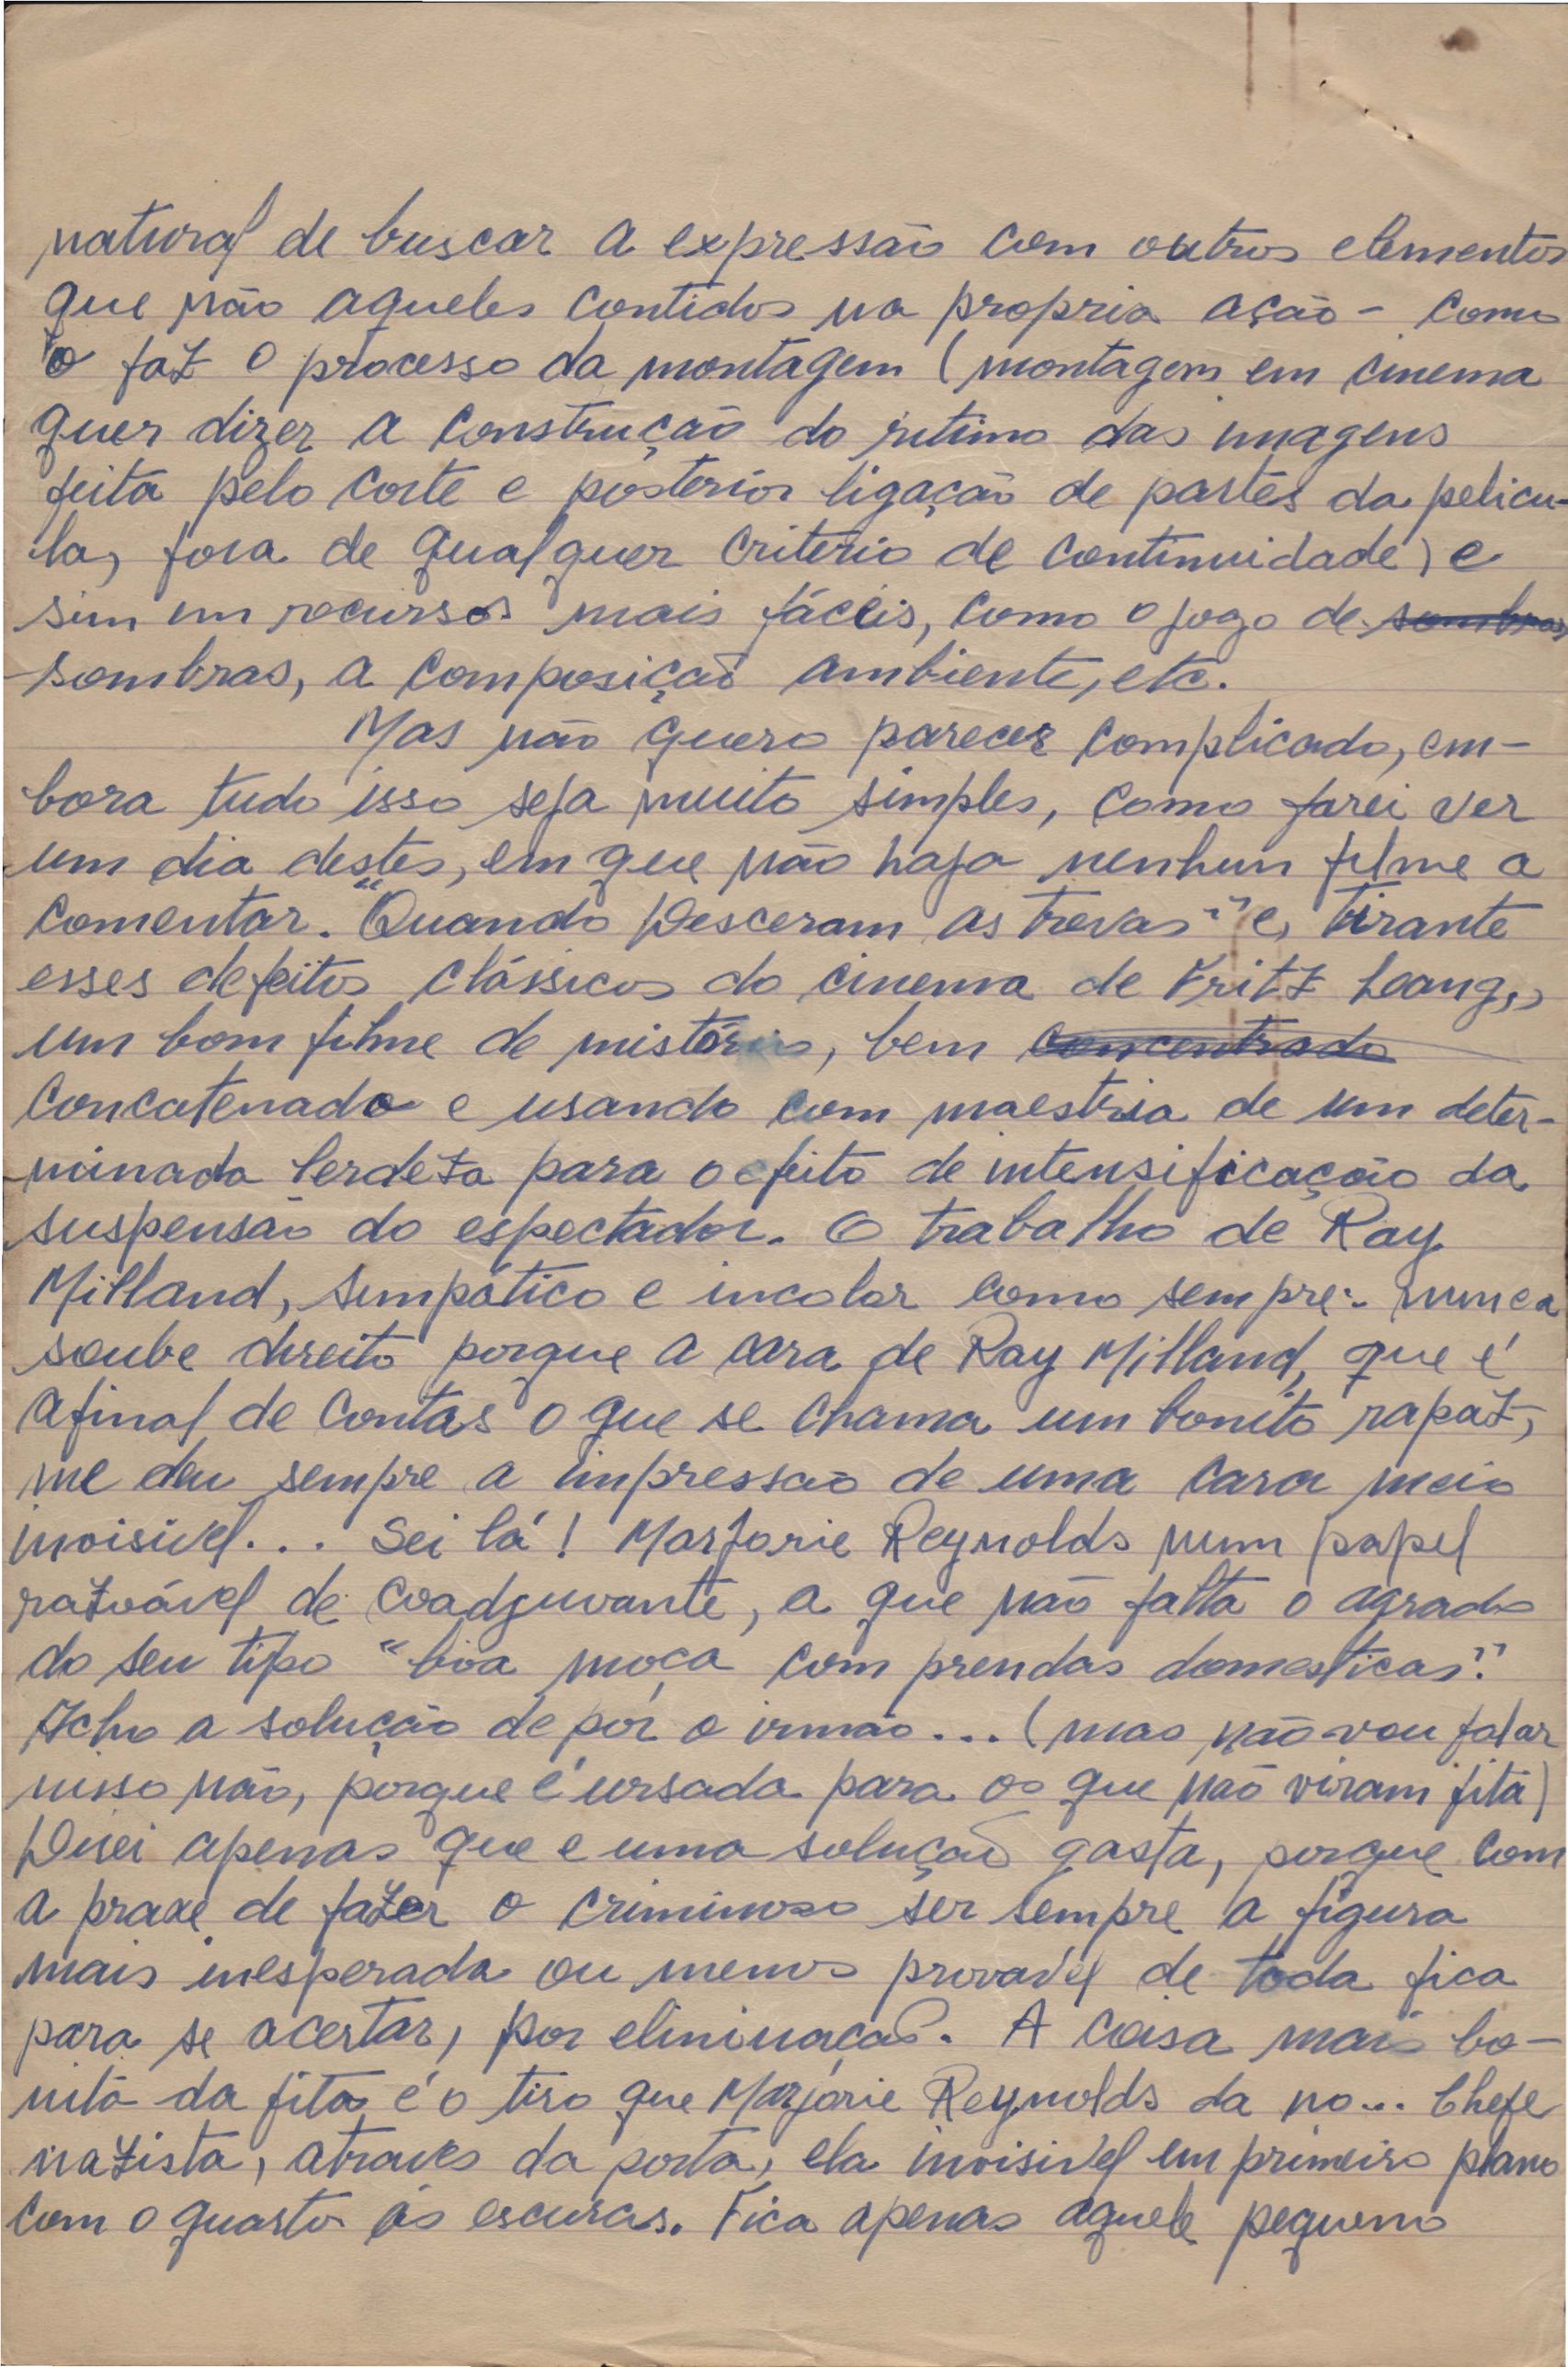 natural de buscar a expressão com outros elementos
que não aqueles contidos na propria ação - como
o faz o processo da montagem (montagem em cinema
quer dizer a construção do ritimo das imagens
feita pelo corte e posterior ligação de partes da pelicu-
la, fora de qualquer criterio de continuidade) e
sim em recursos mais fáceis, como o jogo de sombras
sombras, a composição ambiente, etc.
Mas não quero parecer complicado, em-
bora tudo isso seja muito simples, como farei ver
um dia destes, em que não haja nenhum filme a
comentar. "Quando Desceram as trevas" e, tirante
esses defeitos clássicos do cinema de Fritz Leang,
um bom filme de mistério, bem concentrado
concatenado e usando com maestria de um deter-
minada lerdeza para o efeito de intensificação da
suspensão do espectador. O trabalho de Ray
Milland, simpático e incolor como sempre. nunca
soube direito porque a cara de Ray Milland, que é
afinal de contas o que se chama um bonito rapaz,
me deu sempre a impressão de uma cara meio
invisivel... Sei lá! Marjorie Reynolds num papel
razoável de coadjuvante, a que não falta o agrado
do seu tipo "boa moça com prendas domesticas".
Acho a solução de pôr o irmão... (mas não vou falar
nisso não, porque é ursada para os que não viram fita)
Direi apenas que e uma solução gasta, porque com
a praxe de fazer o criminoso ser sempre a figura
mais inesperada ou menos provavel de toda fica
para se acertar, por eliminação. A coisa mais bo-
nita da fita é o tiro que Marjorie Reynolds da no... Chefe
nazista, atraves da porta, ela invisivel em primeiro plano
com o quarto ás escuras. Fica apenas aquele pequeno